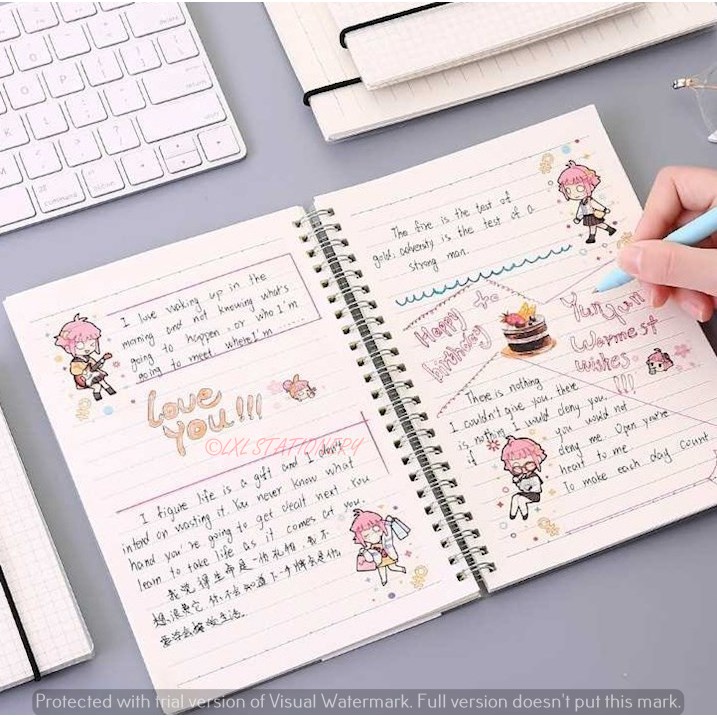 I love waking up in the
morning and not knowing what's
going to happen, or who I'm
going to meet, where I'm
Love
You!!!
©LXLSTATIONERY
I figure life is a gift and I don't
intend on wasting it. You never know what
hand you're going to get dealt next. You
learn to take life as it comes at you.
我觉得生命是一份礼物，我不
想浪费它，你不会知道下一手牌会是什
生活。
The fire is the test of
gold; adversity is the test of a
strong man.
Happy to
birthday
YunYun
Warmest
wishes
!!!
There is nothing
I couldn't give you, there
is nothing I would deny you,
if you would not
deny me. Open you're
heart to me.
To make each day count.
command
option
Protected with trial version of Visual Watermark. Full version doesn't put this mark.